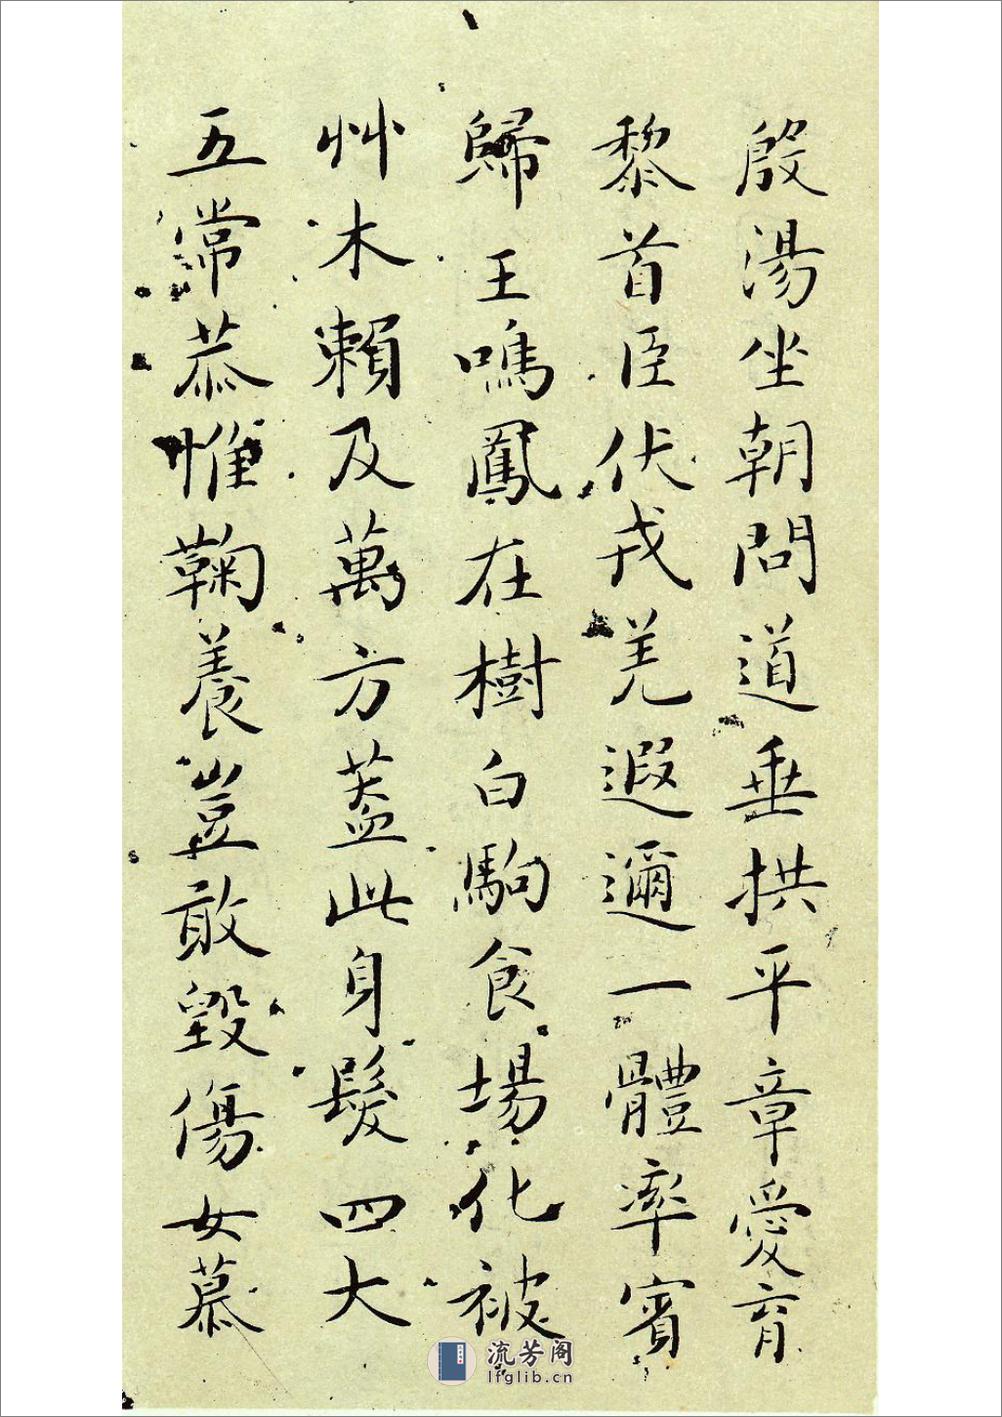 殷湯坐朝問道垂拱平章愛育
黎首臣伏戎羌遐邇一體率賓
歸王鳴鳳在樹白駒食場化被
艸木賴及萬方蓋此身髮四大
五常恭惟鞠養豈敢毀傷女慕
流芳阁
lfglib.cn